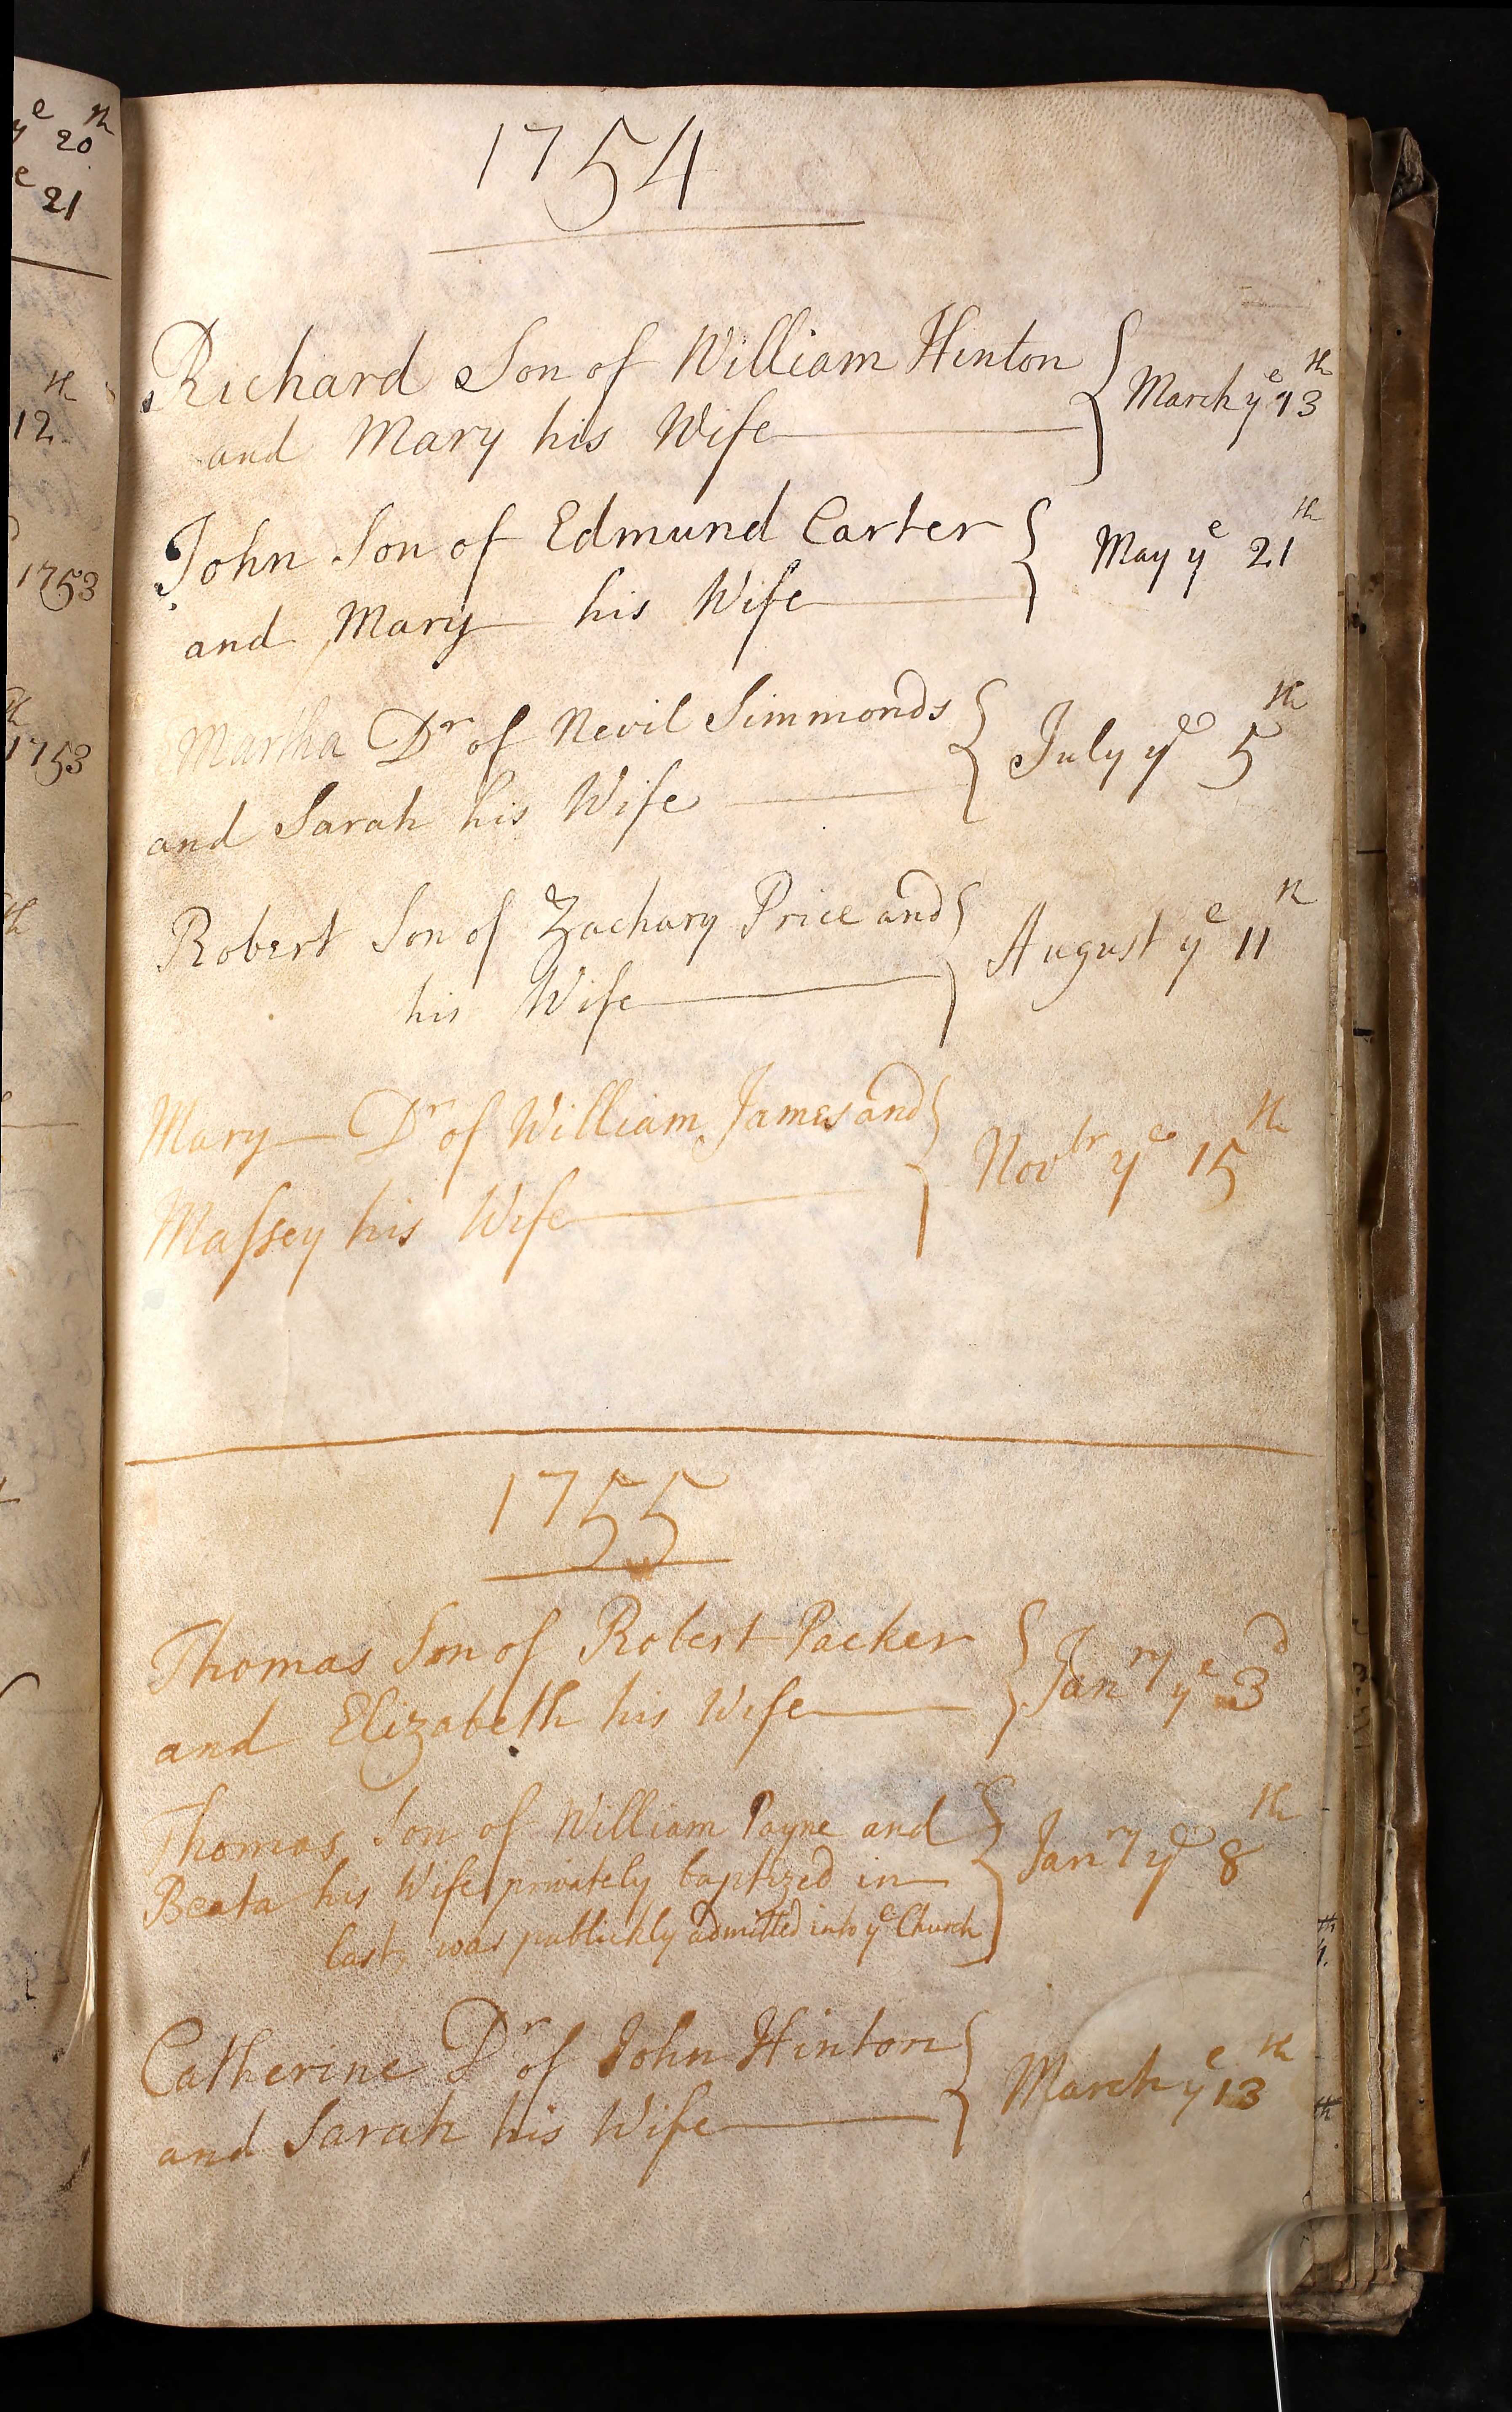 ye 20th
e 21
th
12
1753
th
1753
th
1754
Richard Son of William Hinton
and Mary his Wife
March ye 13th
John Son of Edmund Carter
and Mary his Wife
May ye 21th
Martha Dr of Nevil Simmonds
and Sarah his Wife
July ye 5th
Robert Son of Zachary Price and
his Wife
August ye 11th
Mary Dr of William James and
Maſsey his Wife
Novbr ye 15th
1755
Thomas Son of Robert Packer
and Elizabeth his Wife
Janry ye 3d
Thomas Son of William Payne and
Beata his Wife privately baptized in
last, was publickly admitted into ye Church
Janry ye 8th
Catherine Dr of John Hinton
and Sarah his Wife
March ye 13th